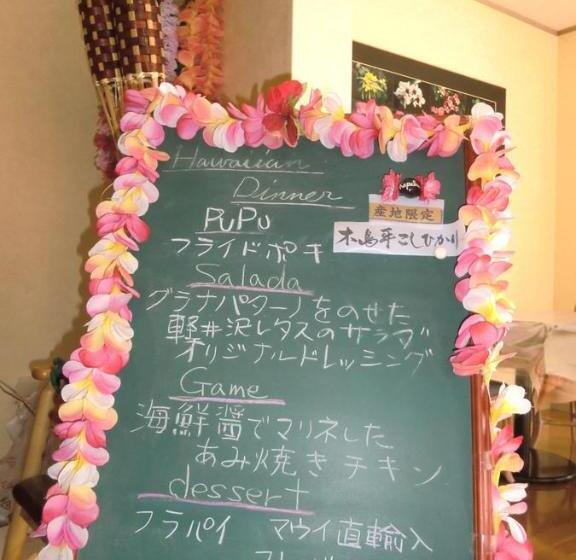 Hawaiian
Dinner
PuPu
産地限定
木島平こしひかり
フライドポキ
Salada
グラナパダーノをのせた
軽井沢レタスのサラダ
オリジナルドレッシング
Game
海鮮醤でマリネした
あみ焼きチキン
dessert
フラパイ マウイ直輸入